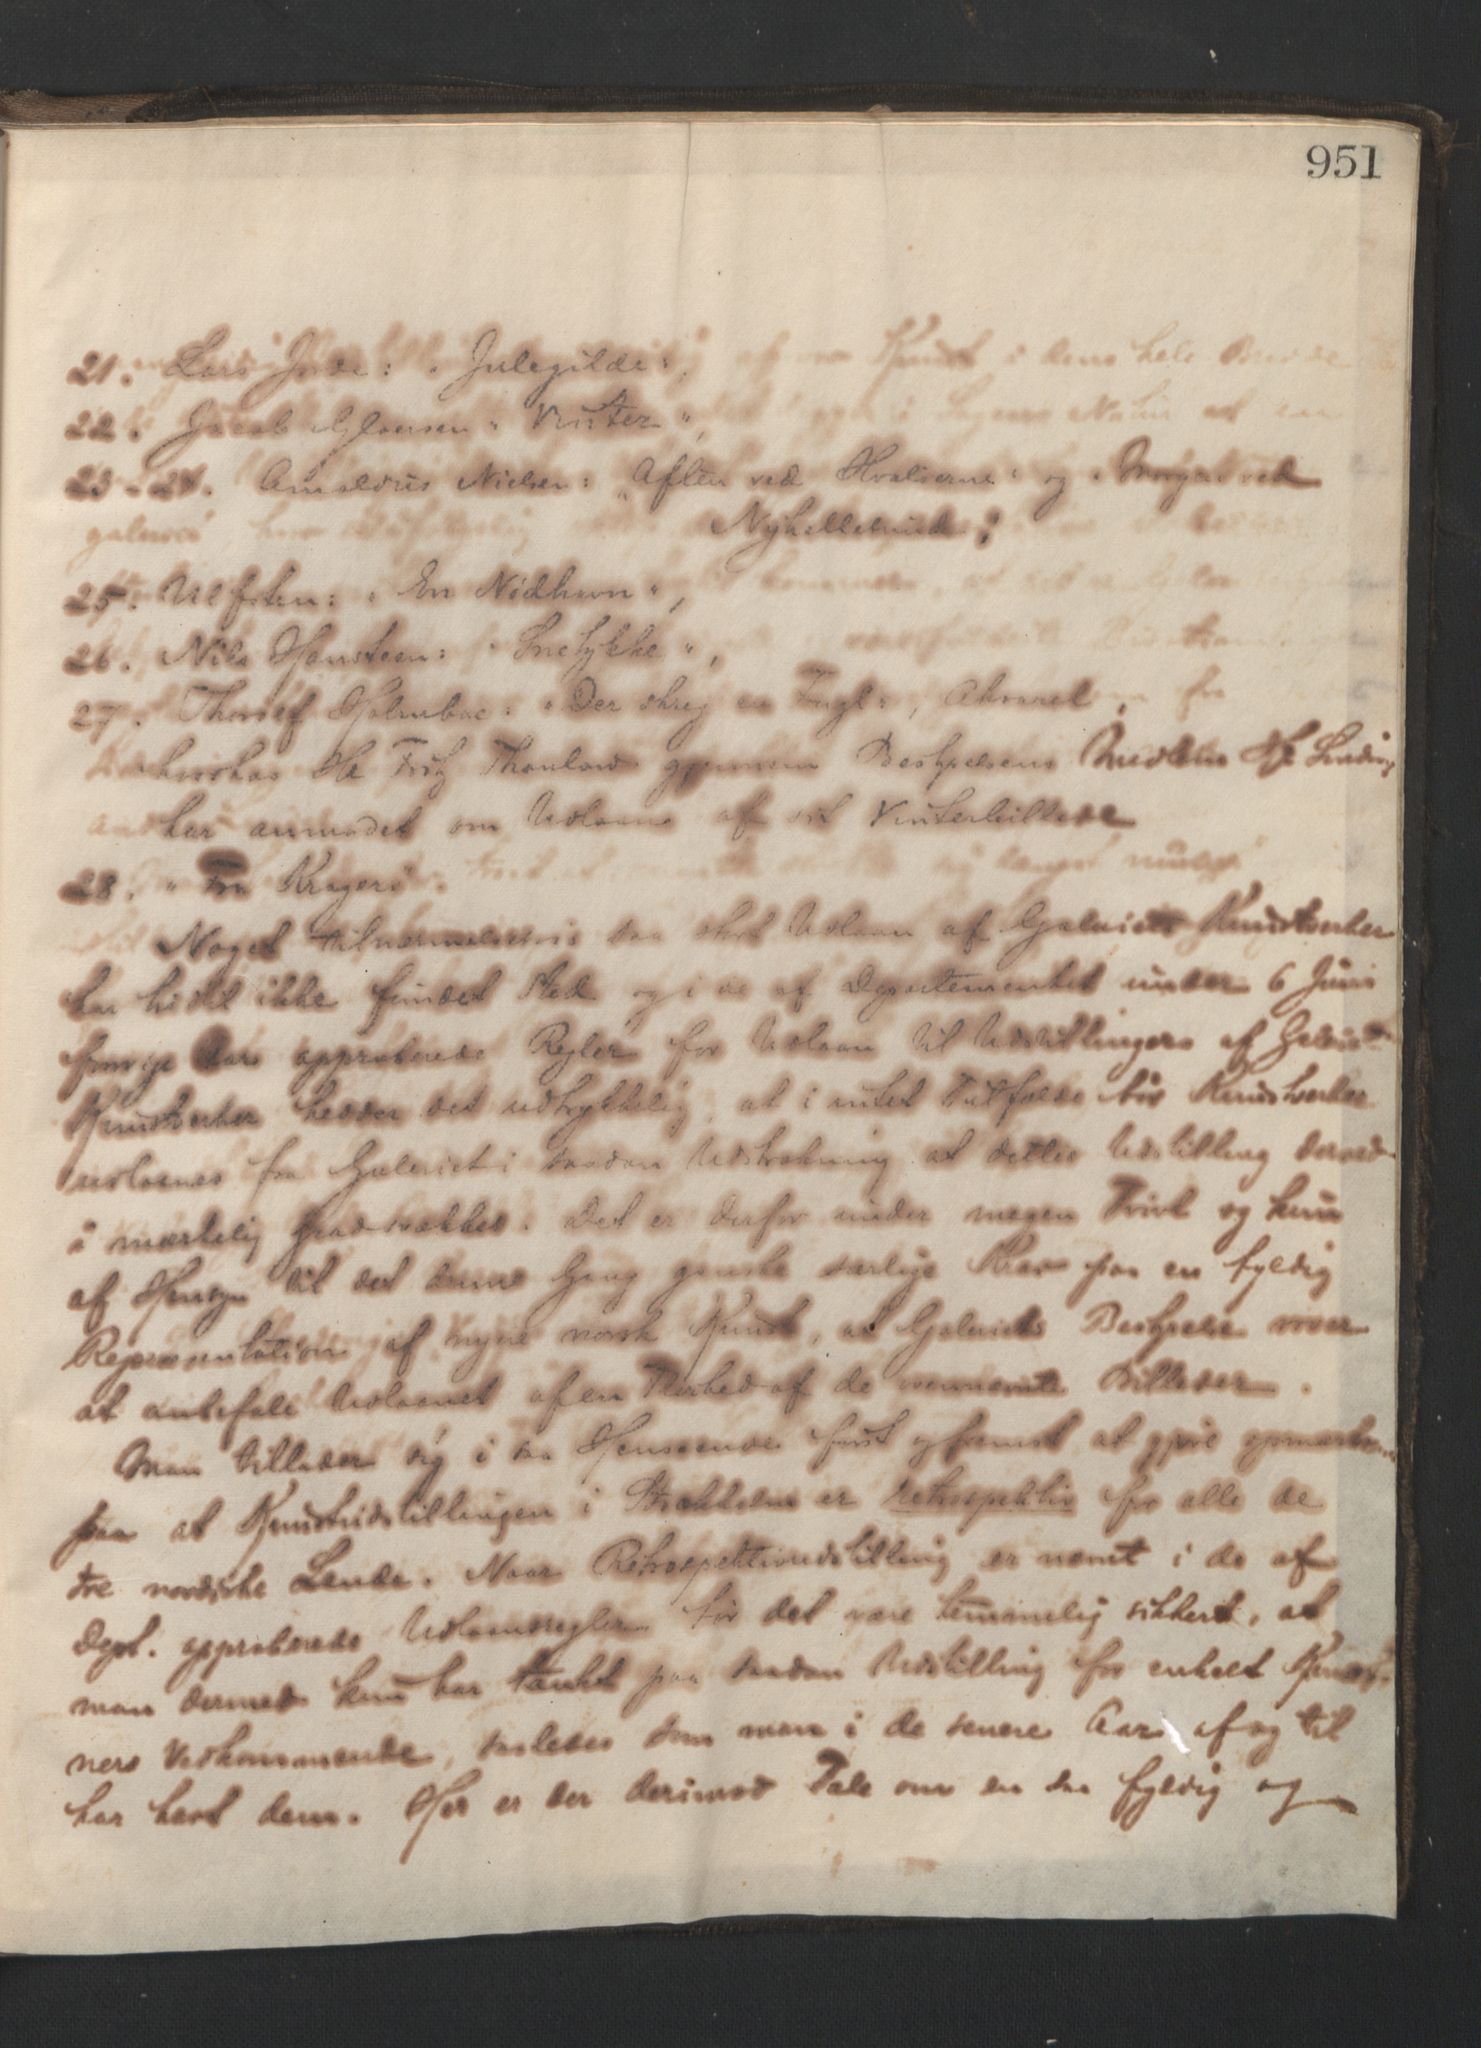 951
21. Lars Jorde: "Julegilde",
22. Jacob Gløersen "Vinter",
23-24. Amaldus Nielsen: "Aften ved Hvaløerne" og "Morgen ved
Nyhellesund",
25. Ulfsten: "En Nødhavn",
26. Nils Hansteen: "Snetykke",
27. Thorolf Holmboe: "Der skreg en Fugl", Akvarel,
hvorhos Hr Fritz Thaulow gjennem Bestyrelsens Medlem Hr Sinding
har anmodet om Udlaan af sit Vinterbillede
28. "Fra Kragerø".
Noget tilnærmelsesvis saa stort Udlaan af Galeriets Kunstverker
har hidtil ikke fundet Sted og i de af Departementet under 6 Juni
forrige Aar approberede Regler for Udlaan til Udstillinger af Galeriets
Kunstverker heder det udtrykkelig, at i intet Tilfælde bør Kunstverker
udlaanes fra Galeriet i saadan Udstrækning at dettes Udstilling derved
i mærkelig Grad svækkes. Det er derfor under megen Tvivl og kun
af Hensyn til det denne Gang ganske særlige Krav paa en fyldig
Repræsentation af nyere norsk Kunst, at Galeriets Bestyrelse vover
at anbefale Udlaanet af en Flerhed af de ovennævnte Billeder.
Man tillader sig i saa Henseende først og fremst at gjøre opmærksom
paa at Kunstudstillingen i Stockholm er retrospektiv for alle de
tre nordiske Lande. Naar Retrospektivudstilling er nævnt i de af
Dept. approberede Udlaansregler tør det være temmelig sikkert, at
man dermed kun har tænkt paa saadan Udstilling for enkelt Kunst-
ners Vedkommende, saaledes som man i de senere Aar af og til
har havt dem. Her er der derimod Tale om en saa fyldig og